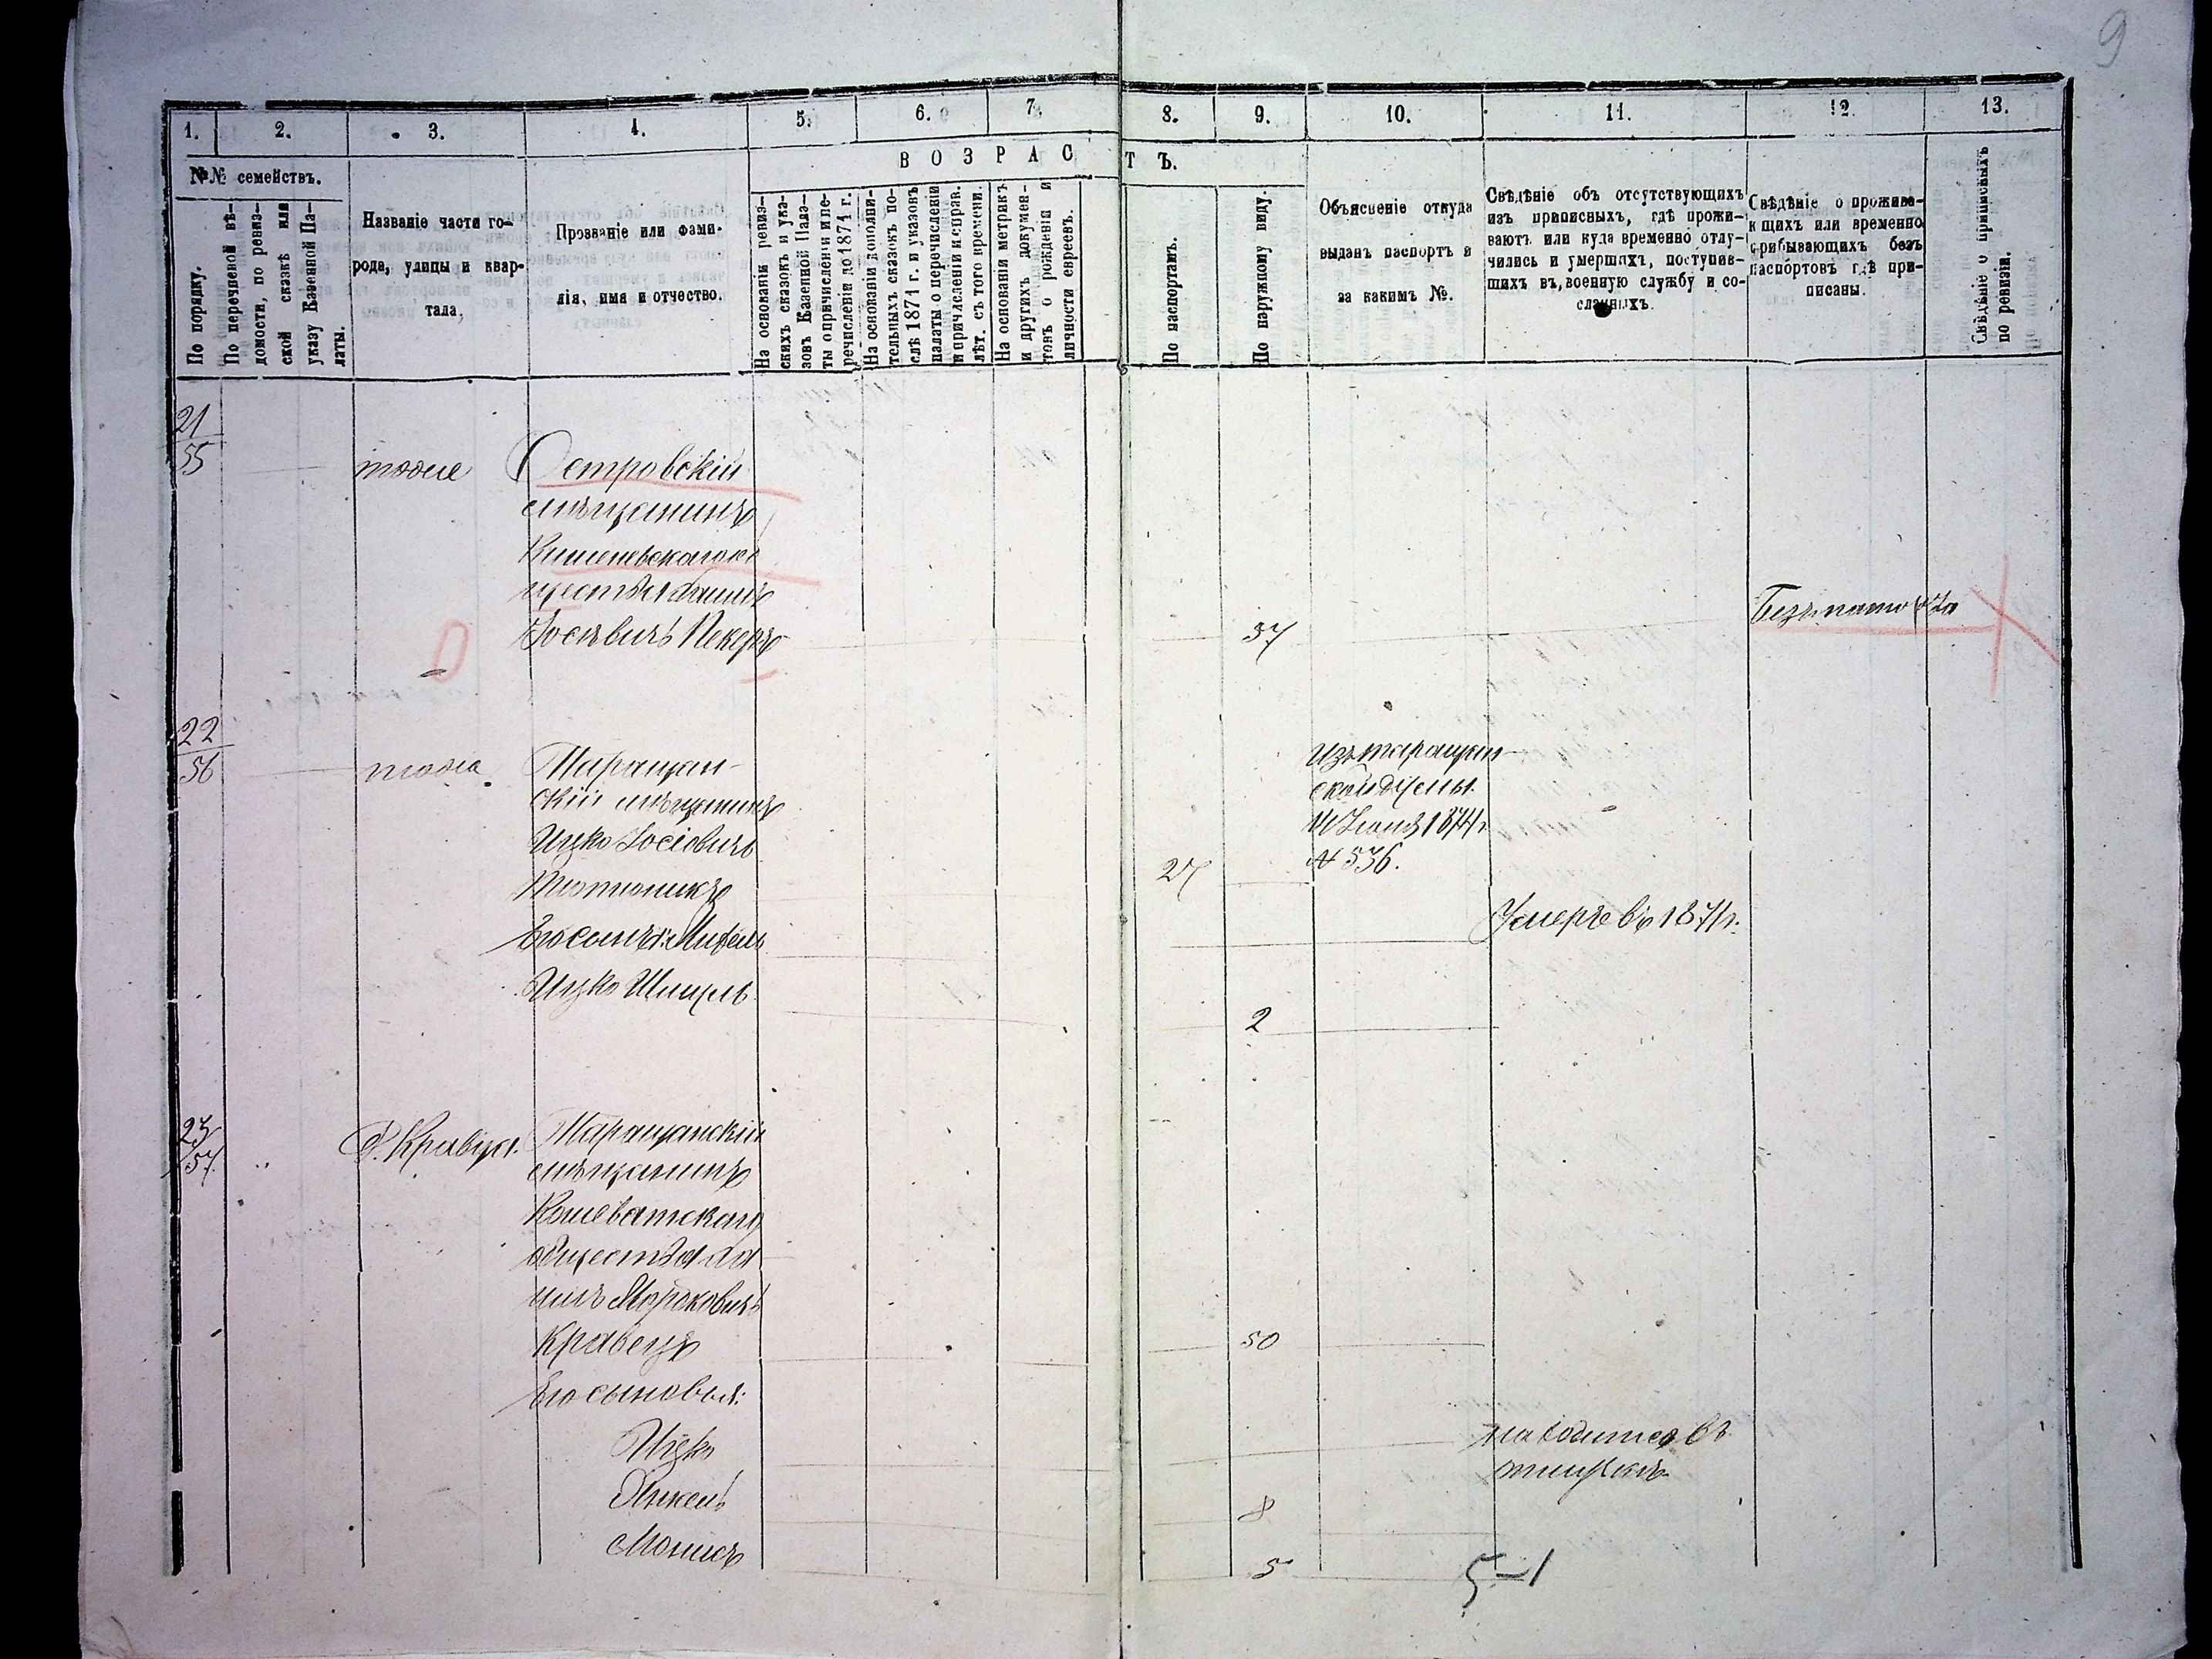 9
1. 2. 3. 4. 5. 6. 7. 8. 9. 10. 11. 12. 13.
№№ семействъ.
ВОЗРАСТЪ.
По порядку.
По перечневой вѣ-
домости, по ревиз-
ской сказкѣ или
указу Казенной Па-
латы.
Названіе части го-
рода, улицы и квар-
тала.
Прозваніе или фами-
лія, имя и отчество.
На основаніи ревиз-
скихъ сказокъ и ука-
зовъ Казенной Пала-
ты о причисленіи и пе-
речисленіи до 1871 г.
На основаніи дополни-
тельныхъ сказокъ по-
слѣ 1871 г. и указовъ
палаты о перечисленіи
и причисленіи и справ.
лѣт. съ того времени.
На основаніи метрикъ
и другихъ докумен-
товъ о рожденіи и
личности евреевъ.
По паспортамъ.
По наружному виду.
Объясненіе откуда
выданъ паспортъ и
за какимъ №.
Свѣдѣніе объ отсутствующихъ
изъ приписныхъ, гдѣ прожи-
ваютъ или куда временно отлу-
чились и умершихъ, поступив-
шихъ въ военную службу и со-
сланныхъ.
Свѣдѣніе о прожива-
ющихъ или временно
прибывающихъ безъ
паспортовъ гдѣ при-
писаны.
Свѣдѣніе о приписныхъ
по ревизіи.
21
55
тоже
Островскій
мѣщанинъ
Іосевичъ Пекеръ
37
22
56
тоже
Таращан-
скій мѣщанинъ
Ицко Іосіовичъ
Тютюникъ
27
Изъ таращан-
ской Думы
1874 г.
№ 536.
Его сынъ
Умеръ въ 1871 г.
Ицко
2
23
57
Кравца
Таращанскій
мѣщанинъ
Кошеватскаго
общества
Морзковичъ
Кравецъ
50
Его сыновья:
Ицко
находится въ
Янкель
8
5
5-1